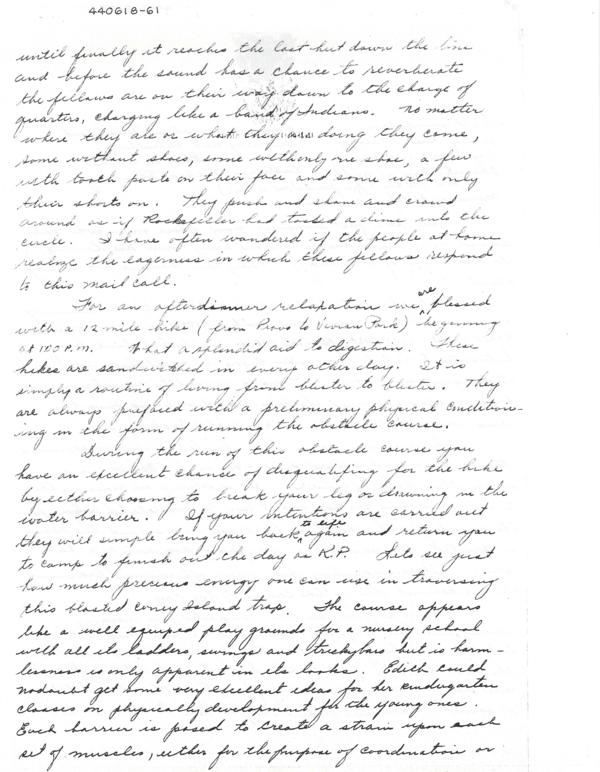 440618-61
until finally it reaches the last hut down the line
and before the sound has a chance to reverberate
the fellows are on their way down to the charge of
quarters, charging like a band of Indians. No matter
where they are or what they are doing they come,
some without shoes, some with only one shoe, a few
with tooth paste on their face and some with only
their shorts on. They push and shove and crowd
around as if Rockefeller had tossed a dime into the
circle. I have often wondered if the people at home
realize the eagerness in which these fellows respond
to this mail call.
For an afterdinner relaxation we are blessed
with a 12 mile hike (from Provo to Vivian Park) beginning
at 1:00 P.M. What a splendid aid to digestion. These
hikes are sandwitched in every other day. It is
simply a routine of living from blister to blister. They
are always prefaced with a preliminary physical condition-
ing in the form of running the obstacle course.
During the run of this obstacle course you
have an excellent chance of disqualifing for the hike
by either choosing to break your leg or drowning in the
water barrier. If your intentions are carried out
they will simple bring you back to life again and return you
to camp to finish out the day as K.P. Lets see just
how much precious energy one can use in traversing
this blasted coney Island trap. The course appears
like a well equiped play grounds for a nursery school
with all its ladders, swings and trickybars but is harm-
lessness is only apparent in its looks. Edith could
nodoubt get some very excellent ideas for her kindergarten
classes on physically development for the young ones.
Each barrier is posed to create a strain upon each
set of muscles, either for the purpose of coordination or